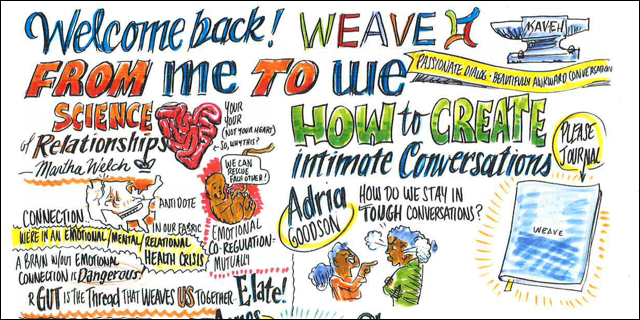 Welcome back! WEAVE
KAVEH
PASSIONATE DIALOG · BEAUTIFULLY AWKWARD CONVERSATION
FROM me TO we
SCIENCE
of Relationships
- Martha Welch
YOUR
YOUR
(NOT YOUR HEART)
SO, WHY THIS?
WE CAN
RESCUE
EACH OTHER!
CONNECTION
ANTIDOTE
IN OUR FABRIC
WE'RE IN AN EMOTIONAL/MENTAL/RELATIONAL
HEALTH CRISIS
A BRAIN W/OUT EMOTIONAL
CONNECTION IS Dangerous!
EMOTIONAL
CO-REGULATION=
MUTUALLY
R GUT IS THE THREAD THAT WEAVES US TOGETHER. Elate!
HOW to CREATE
intimate Conversations
PLEASE
JOURNAL
Adria
GOODSON
HOW DO WE STAY IN
TOUGH CONVERSATIONS?
WEAVE